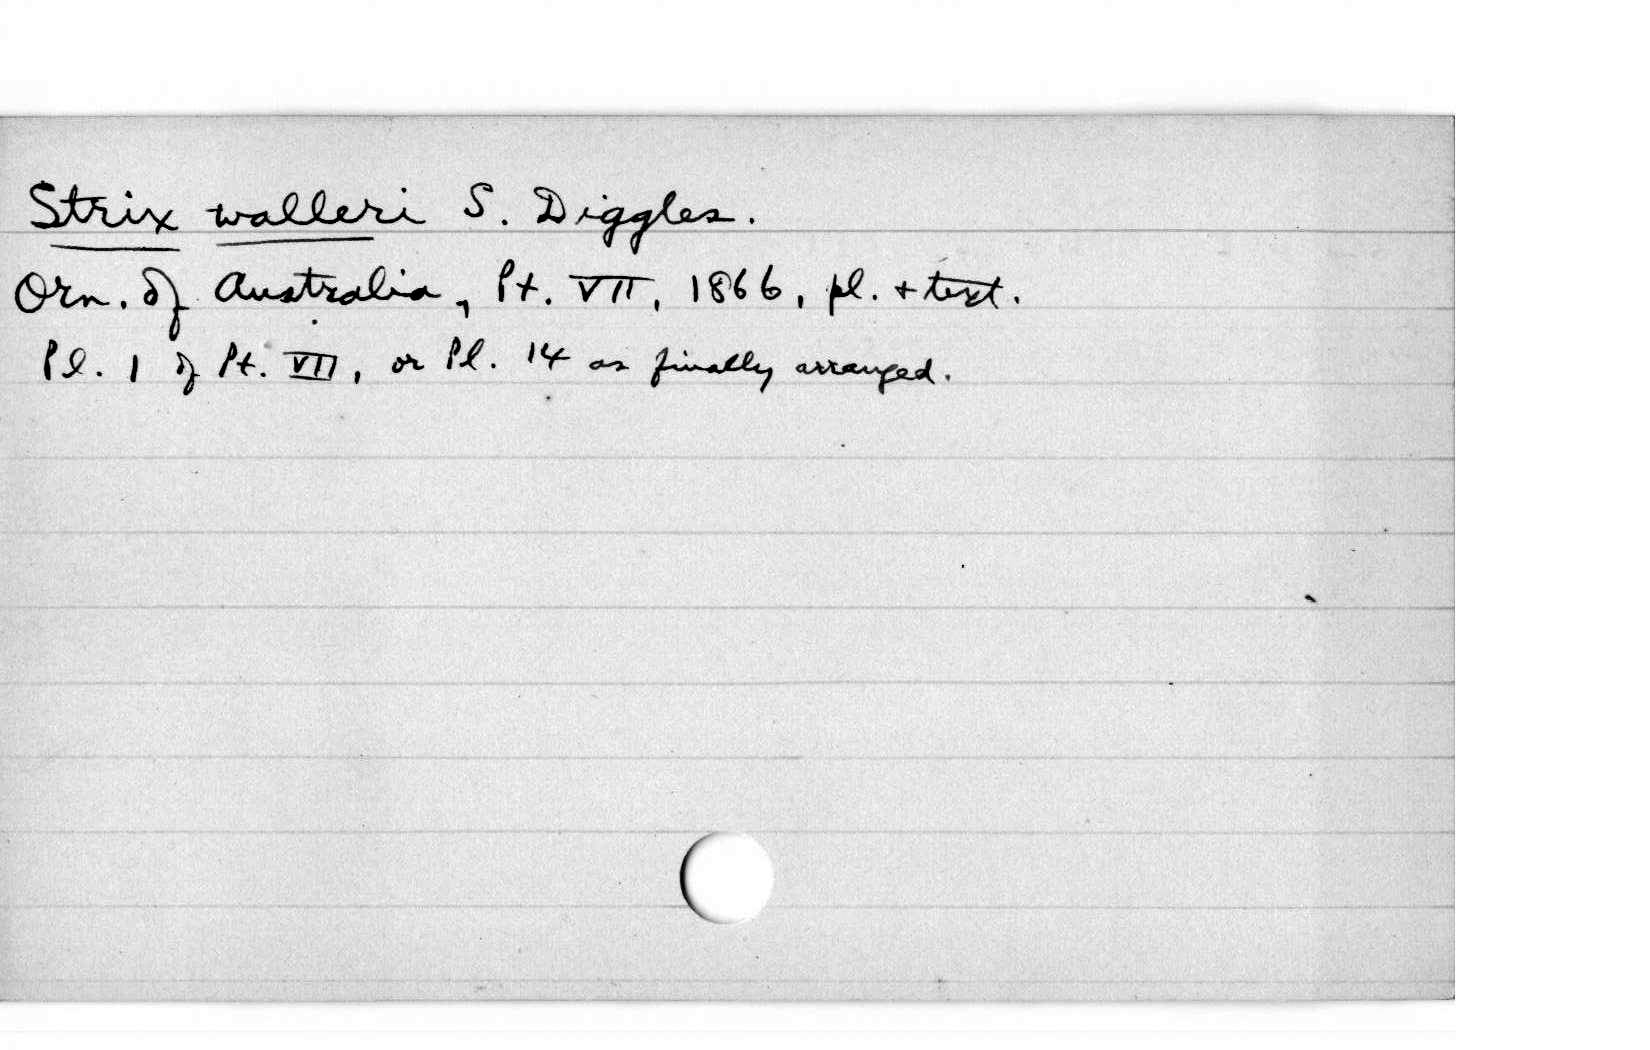 Strix walleri S. Diggles.
Orn. of Australia, Pt. VII, 1866, pl. + text.
Pl. 1 of Pt. VII, or Pl. 14 as finally arranged.